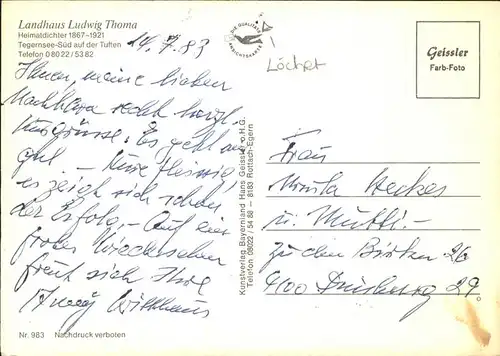 Landhaus Ludwig Thoma
Heimatdichter 1867–1921
Tegernsee-Süd auf der Tuften
Telefon 0 80 22 / 53 82
14.7.83
DIE QUALITÄTS
ANSICHTSKARTE
Löcher
Geissler
Farb-Foto
Ihnen, meine lieben
Nachbarn recht herzl.
Kurgrüsse. Es geht mir
gut — Kure fleissig,
es zeigt sich schon
der Erfolg. — Auf ein
frohes Wiedersehen
freut sich Ihre
Kunstverlag Bayernland Hans Geissler o.H.G.
Telefon 08022 / 54 88 8183 Rottach-Egern
Frau
Ursula
u. Mutti. —
Zu den Birken 26
4100 Duisburg 29.
Nr. 983 Nachdruck verboten